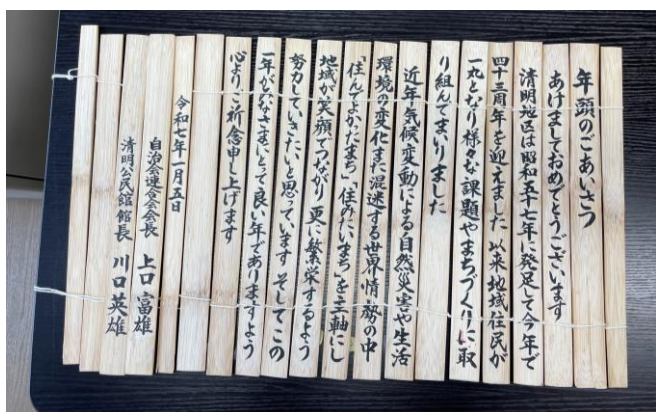 年頭のごあいさつ
あけましておめでとうございます
清明地区は昭和五十七年に発足して今年で
四十三周年を迎えました 以来地域住民が
一丸となり様々な課題やまちづくりに取
り組んでまいりました
近年気候変動による自然災害や生活
環境の変化また混迷する世界情勢の中
「住んでよかったまち」「住みたいまち」を主軸にし
地域が笑顔でつながり 更に繁栄するよう
努力していきたいと思っています そしてこの
一年がみなさまにとって良い年でありますよう
心よりご祈念申し上げます
令和七年一月五日
自治会連合会会長 上口富雄
清明公民館館長 川口英雄